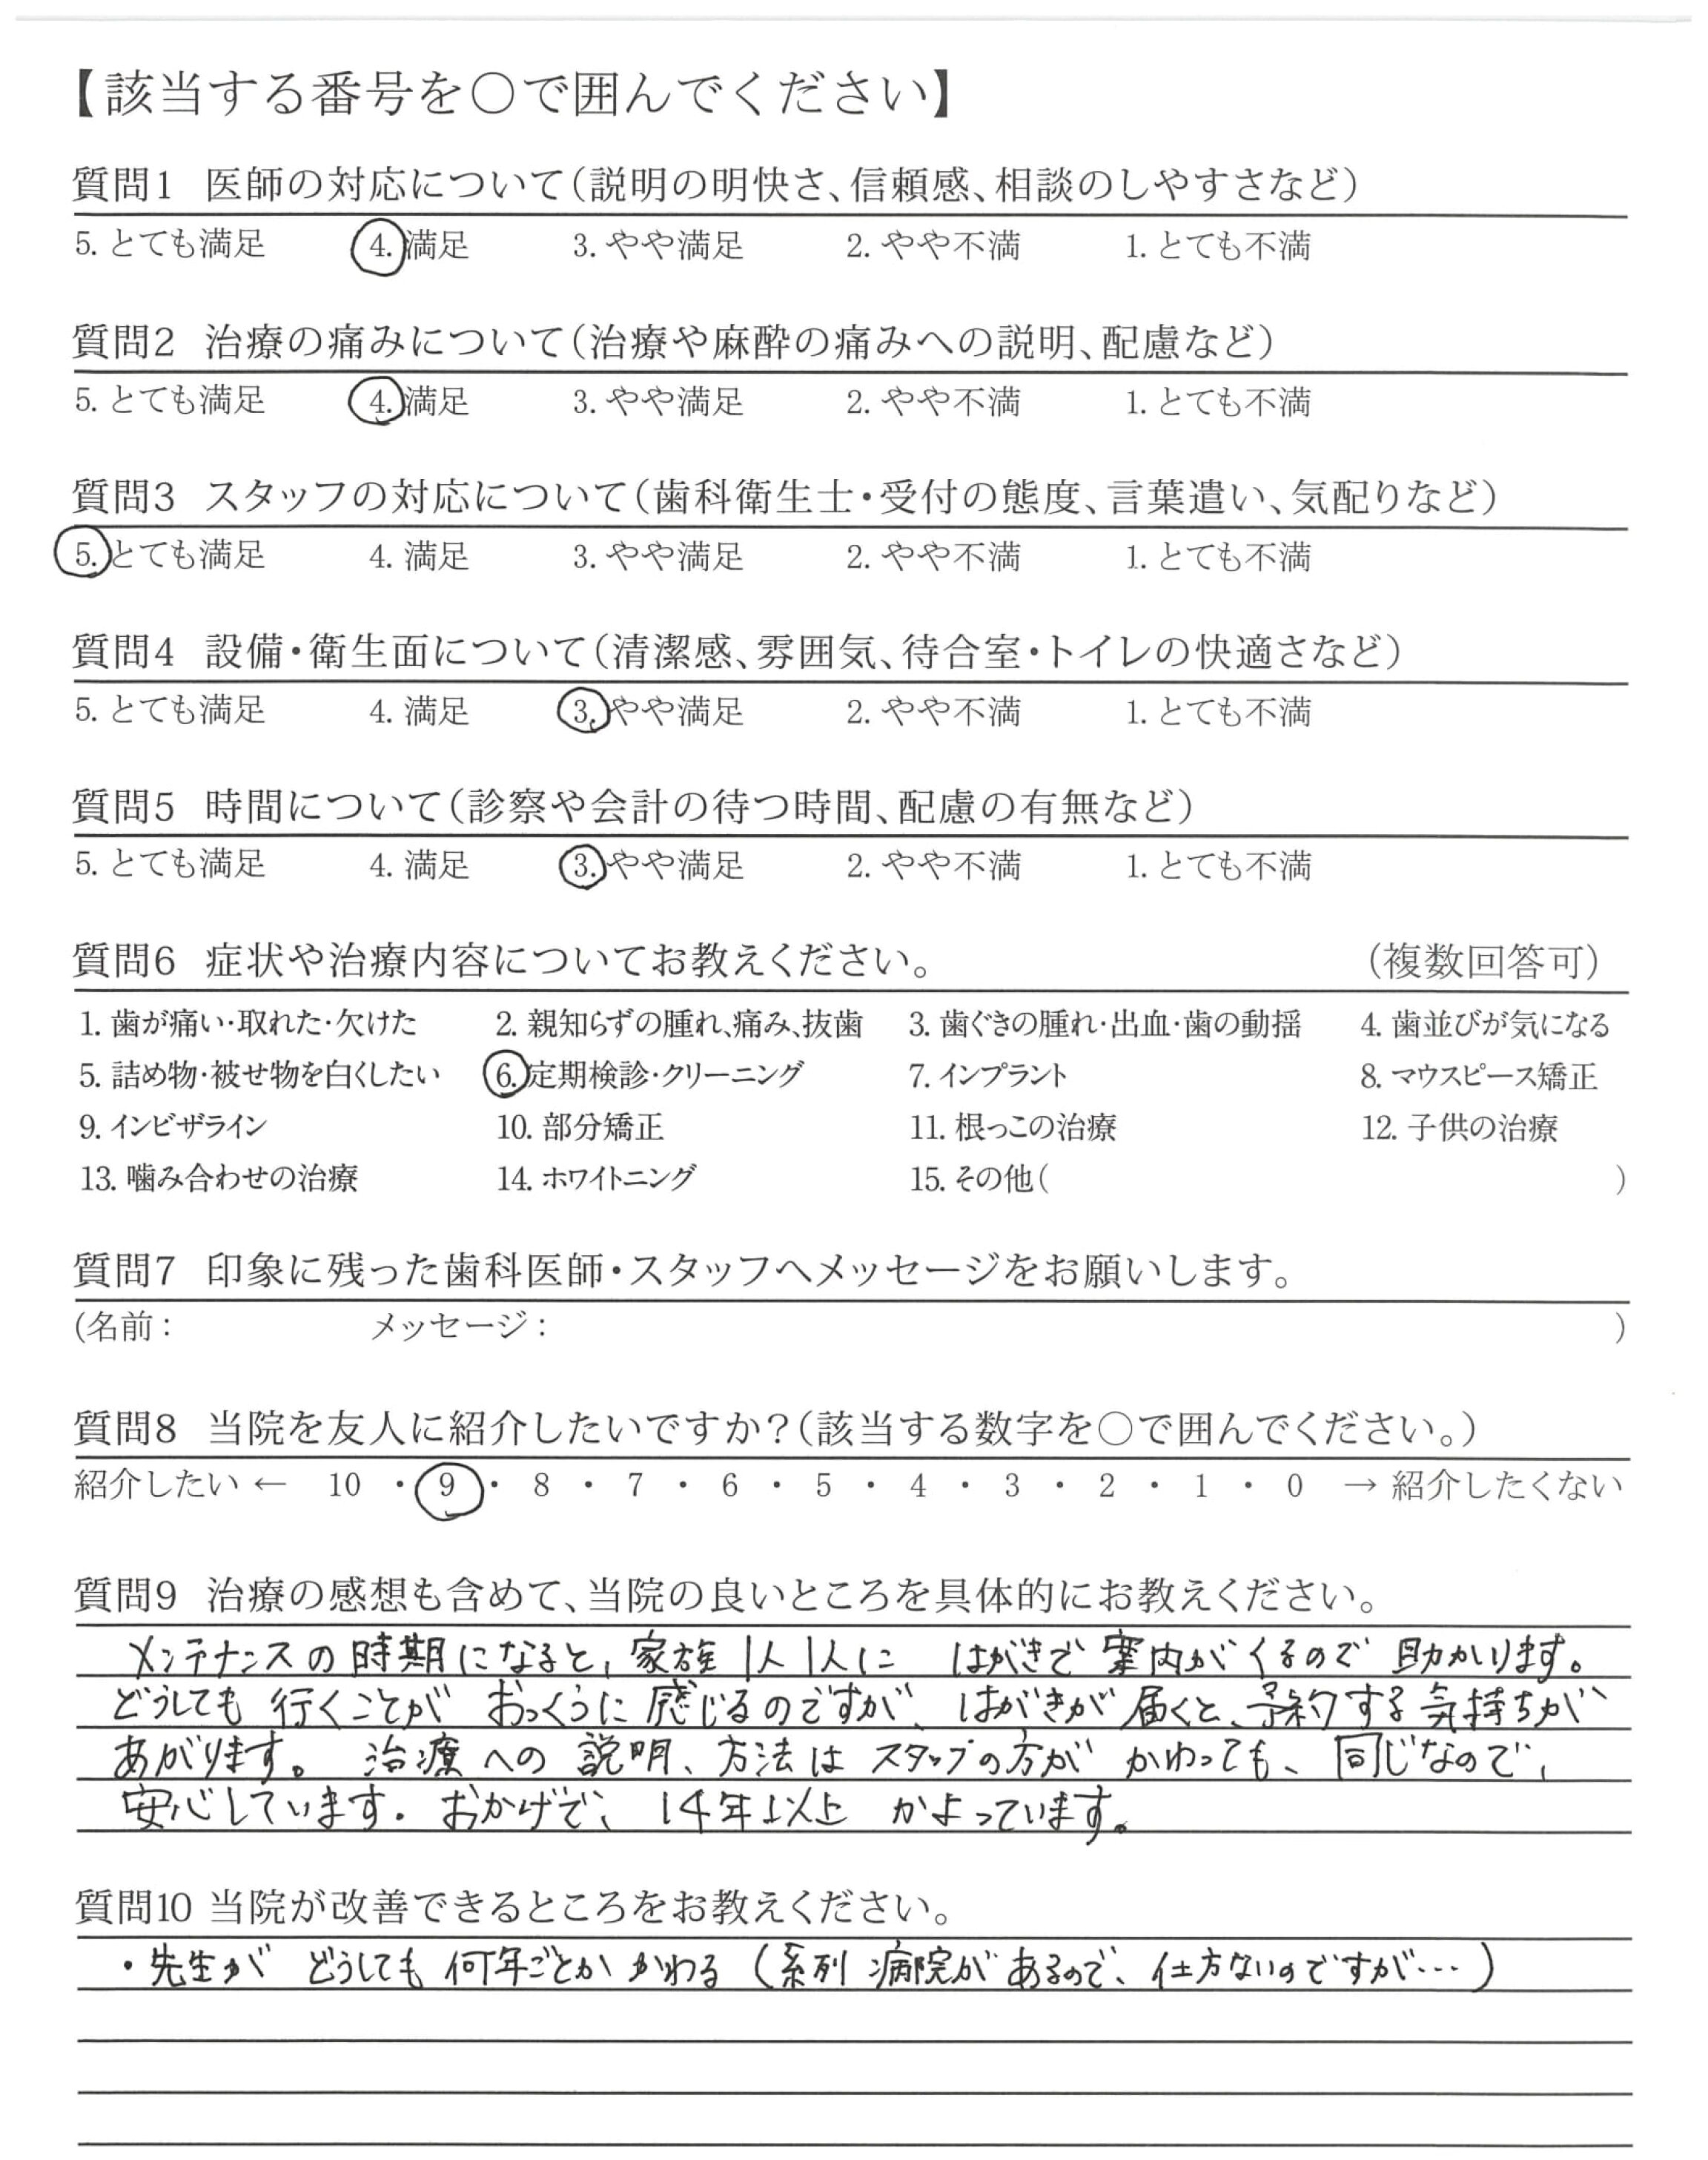 【該当する番号を○で囲んでください】
質問1 医師の対応について(説明の明快さ、信頼感、相談のしやすさなど)
5. とても満足 4. 満足 3. やや満足 2. やや不満 1. とても不満
質問2 治療の痛みについて(治療や麻酔の痛みへの説明、配慮など)
5. とても満足 4. 満足 3. やや満足 2. やや不満 1. とても不満
質問3 スタッフの対応について(歯科衛生士・受付の態度、言葉遣い、気配りなど)
5. とても満足 4. 満足 3. やや満足 2. やや不満 1. とても不満
質問4 設備・衛生面について(清潔感、雰囲気、待合室・トイレの快適さなど)
5. とても満足 4. 満足 3. やや満足 2. やや不満 1. とても不満
質問5 時間について(診察や会計の待つ時間、配慮の有無など)
5. とても満足 4. 満足 3. やや満足 2. やや不満 1. とても不満
質問6 症状や治療内容についてお教えください。 (複数回答可)
1. 歯が痛い・取れた・欠けた 2. 親知らずの腫れ、痛み、抜歯 3. 歯ぐきの腫れ・出血・歯の動揺 4. 歯並びが気になる
5. 詰め物・被せ物を白くしたい 6. 定期検診・クリーニング 7. インプラント 8. マウスピース矯正
9. インビザライン 10. 部分矯正 11. 根っこの治療 12. 子供の治療
13. 噛み合わせの治療 14. ホワイトニング 15. その他( )
質問7 印象に残った歯科医師・スタッフへメッセージをお願いします。
(名前: メッセージ: )
質問8 当院を友人に紹介したいですか?(該当する数字を○で囲んでください。)
紹介したい ← 10 ・ 9 ・ 8 ・ 7 ・ 6 ・ 5 ・ 4 ・ 3 ・ 2 ・ 1 ・ 0 → 紹介したくない
質問9 治療の感想も含めて、当院の良いところを具体的にお教えください。
メンテナンスの時期になると、家族1人1人に はがきで案内がくるので助かります。
どうしても行くことが おっくうに感じるのですが、はがきが届くと、予約する気持ちが
あがります。 治療への説明、方法はスタッフの方が かわっても、同じなので、
安心しています。おかげで、14年以上 かよっています。
質問10 当院が改善できるところをお教えください。
・先生が どうしても何年ごとか かわる (系列病院があるので、仕方ないのですが…)